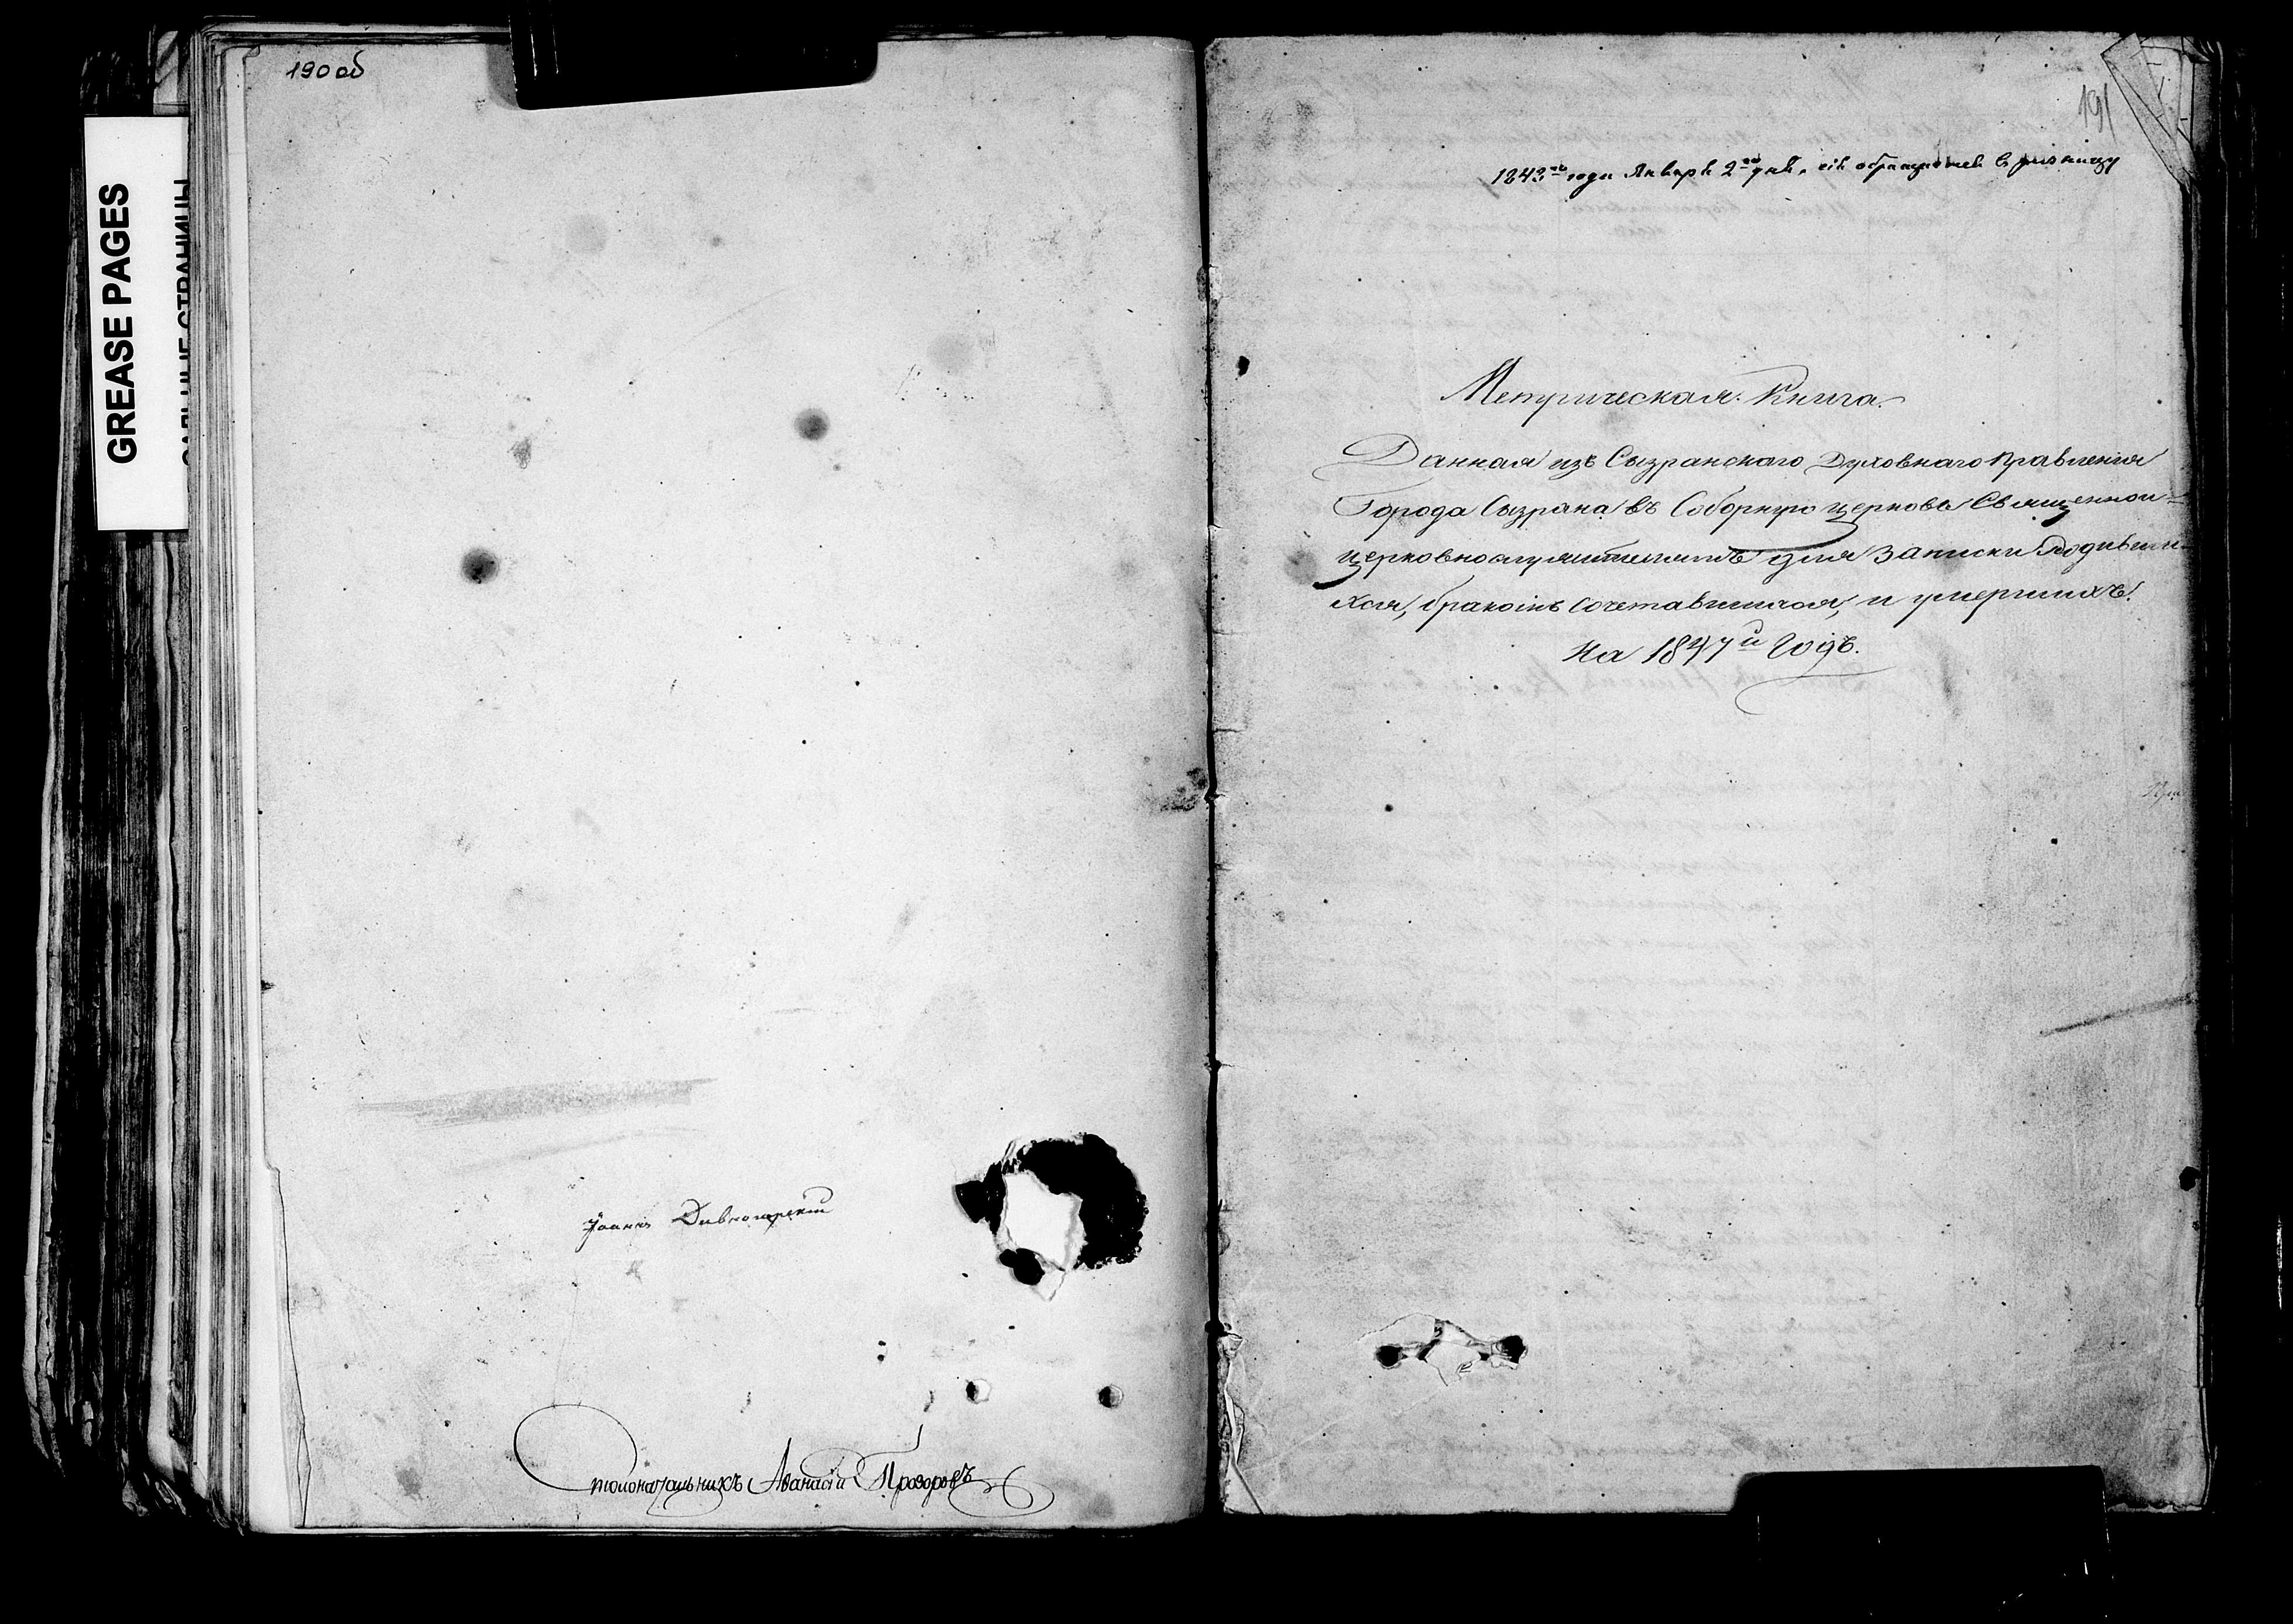 190 об
GREASE PAGES
САЛЬНЫЕ СТРАНИЦЫ
Іоаннъ Дивногорскій
Столоначальникъ Аѳанасій Прозоровъ
191
года Января 2го дня,
Метрическая Книга.
Данная изъ Сызранскаго Духовнаго Правленія
Города Сызрана въ Соборную церковь Священно-
церковнослужителямъ для записки Родивши-
хся, бракомъ сочетавшихся, и умершихъ.
На 1847й Годъ.